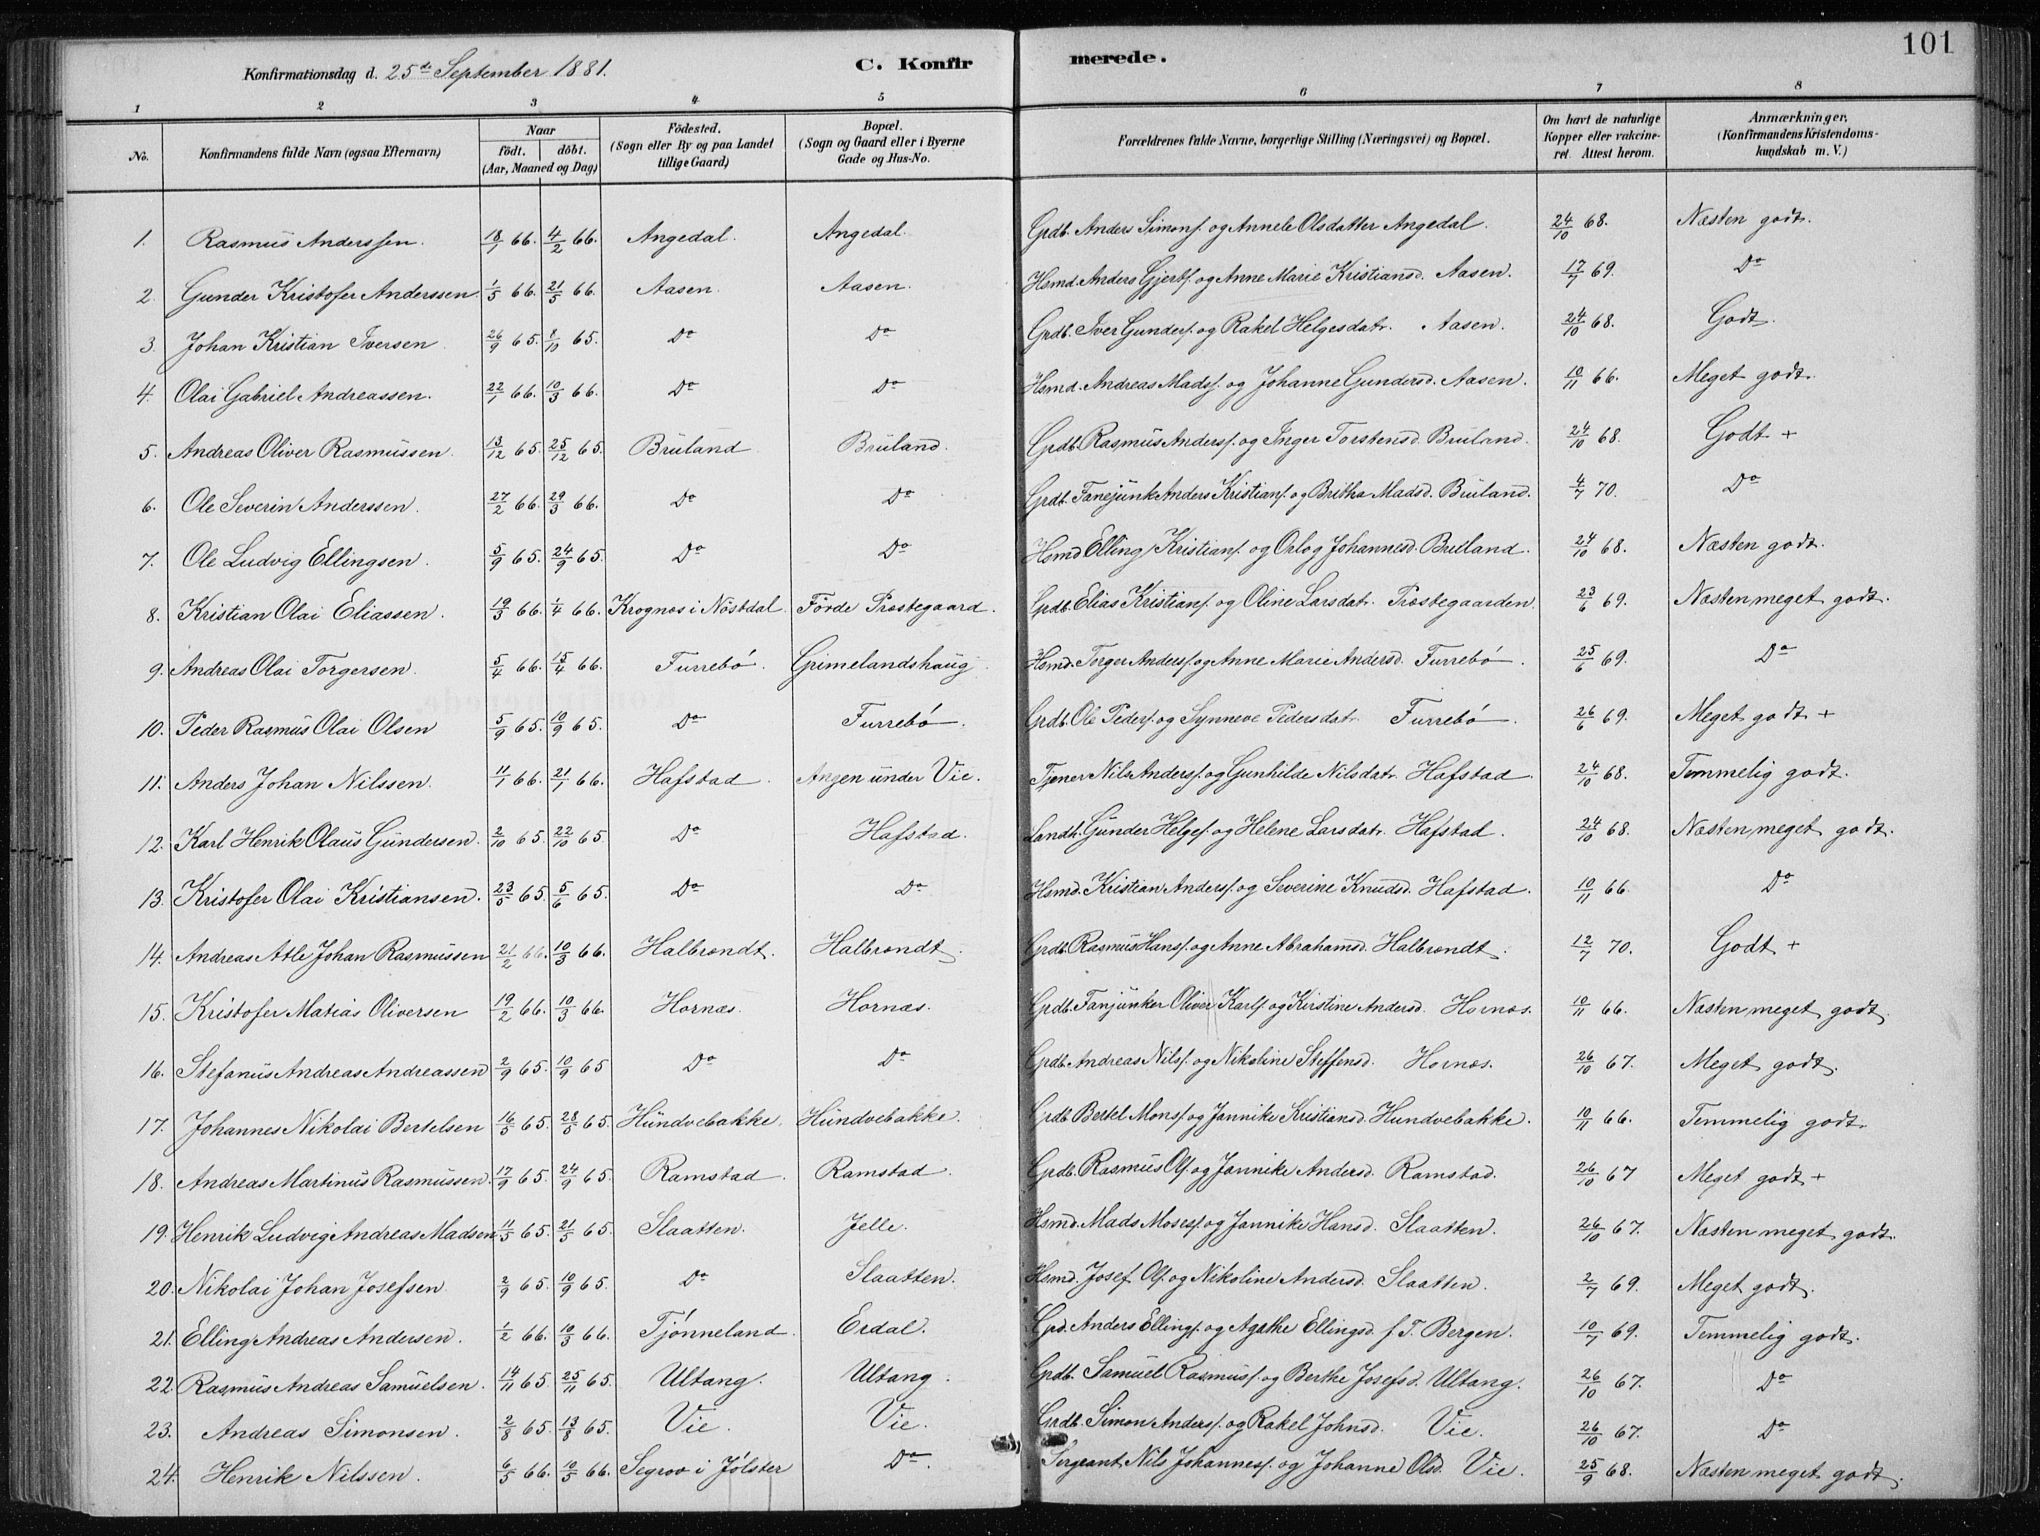 101
Konfirmationsdag d. 25de September 1881. C. Konfir merede.
1 2 3 4 5 6 7 8
No. Konfirmandens fulde Navn (ogsaa Efternavn) Naar födt. döbt. (Aar, Maaned og Dag) Födested. (Sogn eller By og paa Landet tillige Gaard) Bopæl. (Sogn og Gaard eller i Byerne Gade og Hus-No. Forældrenes fulde Navne, borgerlige Stilling (Næringsvei) og Bopæl. Om havt de naturlige Kopper eller vakcineret. Attest herom. Anmærkninger. (Konfirmandens Kristendomskundskab m. V.)
1. Rasmus Anderssen. 18/1 66. 4/2 66. Angedal. Angedal. Grdb. Anders Simons. og Annele Olsdatter Angedal. 24/10 68. Næsten godt.
2. Gunder Kristofer Anderssen 1/5 66. 21/5 66. Aasen. Aasen. Hsmd. Anders Gjerts. og Anne Marie Kristiansd. Aasen. 17/7 69. Do
3. Johan Kristian Iversen 26/9 65. 8/10 65. Do Do Grdb. Iver Gunders. og Rakel Helgesdatr. Aasen. 24/10 68. Godt.
4. Olai Gabriel Andreassen. 22/1 66. 10/3 66. Do Do Hsmd. Andreas Mads. og Johanne Gundersd. Aasen. 10/11 66. Meget godt.
5. Andreas Oliver Rasmussen. 13/12 65. 25/12 65. Bruland Bruland. Grdb. Rasmus Anders. og Inger Torstensd. Bruland. 24/10 68. Godt +
6. Ole Severin Anderssen. 27/2 66. 29/3 66. Do Do Grdb. Fanejunk Anders Kristians. og Britha Madsd. Bruland. 4/7 70. Do
7. Ole Ludvig Ellingsen. 5/9 65. 24/9 65. Do Do Hsmd Elling Kristians. og Orlog Johannesd. Bruland. 24/10 68. Næsten godt.
8. Kristian Olai Eliassen. 19/3 66. 1/4 66. Krognæs i Nöstdal. Förde Præstegaard. Grdb. Elias Kristians. og Oline Larsdatr. Præstegaarden 23/6 69. Næsten meget godt.
9. Andreas Olai Torgersen. 5/4 66. 15/4 66. Furrebö. Grimelandshaug Hsmd. Torger Anders. og Anne Marie Andersd. Furrebö. 25/6 69. Do
10. Peder Rasmus Olai Olsen 5/9 65. 10/9 65. Do Furrebö. Grdb. Ole Peders. og Synneve Pedersdatr. Furrebö. 26/6 69. Meget godt +
11. Anders Johan Nilssen. 11/1 66. 21/1 66. Hafstad. Angen under Vie. Tjener Nils Anders. og Gunhilde Nilsdatr. Hafstad. 24/10 68. Temmelig godt.
12. Karl Henrik Olaus Gundersen. 2/10 65. 22/10 65. Do Hafstad. Landh. Gunder Helges. og Helene Larsdatr. Hafstad. 24/10 68. Næsten meget godt.
13. Kristofer Olai Kristiansen. 23/5 65. 5/6 65. Do Do Hsmd. Kristian Anders. og Severine Knudsd. Hafstad. 10/11 66. Do
14. Andreas Atle Johan Rasmussen 21/2 66. 10/3 66. Halbrendt. Halbrendt. Grdb. Rasmus Hans. og Anne Abrahamsd. Halbrendt. 12/7 70. Godt +
15. Kristofer Matias Oliversen 19/2 66. 10/3 66. Hornæs. Hornæs. Grdb. Fanjunker Oliver Karls. og Kirstine Andersd. Hornæs. 10/11 66. Næsten meget godt.
16. Stefanus Andreas Andreassen 2/9 65. 10/9 65 Do Do Grdb. Andreas Nils. og Nikoline Steffensd. Hornæs. 26/10 67. Meget godt.
17. Johannes Nikolai Bertelsen 16/5 65. 28/5 65. Hundvebakke. Hundvebakke. Grdb. Bertel Mons. og Jannike Kristiansd. Hundvebakke. 10/11 66. Temmelig godt.
18. Andreas Martinus Rasmussen. 17/9 65. 24/9 65. Ramstad. Ramstad. Grdb. Rasmus Ols. og Jannike Andersd. Ramstad. 26/10 67 Meget godt +
19. Henrik Ludvig Andreas Madsen 11/5 65. 21/5 65. Slaatten. Jelle. Hsmd. Mads Moses. og Jannike Hansd. Slaatten. 26/10 67. Næsten meget godt.
20. Nikolai Johan Josefsen 2/9 65. 10/9 65. Do Slaatten. Hsmd. Josef Ols. og Nikoline Andersd. Slaatten. 2/7 69. Meget godt.
21. Elling Andreas Andersen. 1/2 66. 10/3 66. Tjönneland. Erdal. Grd. Anders Ellings. og Agathe Ellingsd. f. T. Bergen. 10/7 69. Temmelig godt.
22. Rasmus Andreas Samuelsen. 14/11 65. 25/11 65. Ultang. Ultang. Grdb. Samuel Rasmus. og Berthe Josefsd. Ultang. 26/10 67. Do
23. Andreas Simonsen. 2/8 65. 13/8 65. Vie. Vie. Grdb. Simon Anders. og Rakel Johnsd. Vie. 26/10 67. Do
24. Henrik Nilssen. 6/5 66. 10/5 66. Segrov i Jölster Do. Sergeant Nils Johannes. og Johanne Olsd. Vie. 25/9 68. Næsten meget godt.